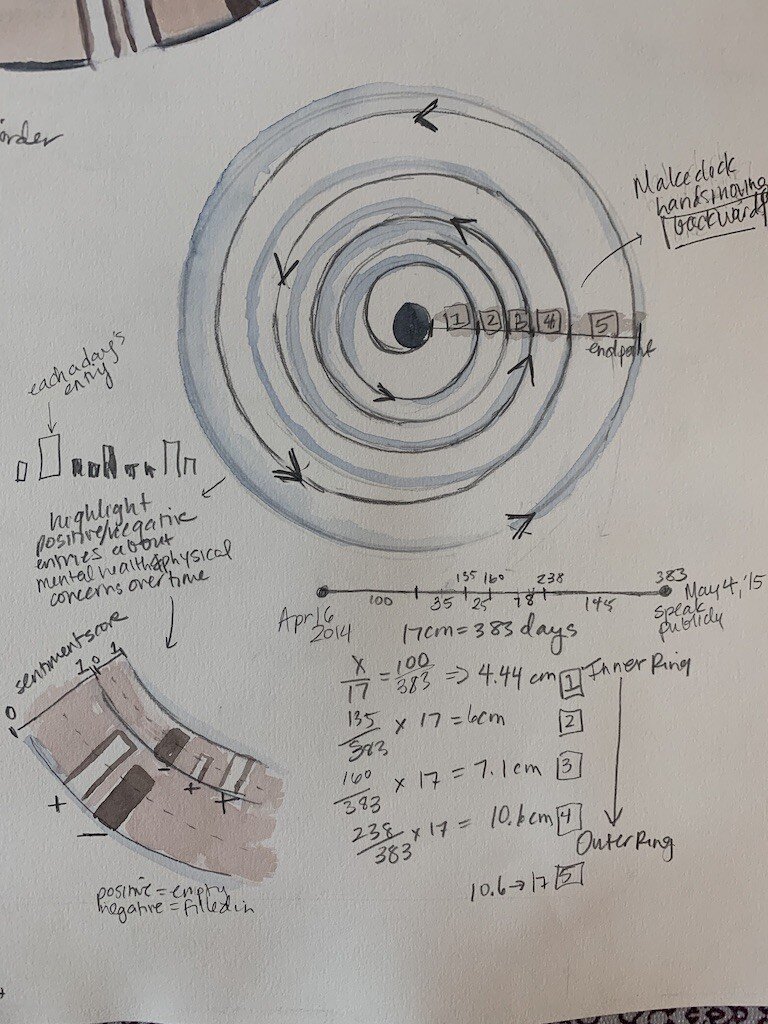 order
Make clock
hands moving
backward
1 2 3 4 5
endpoint
each a day's
entry
highlight
positive/negative
entries about
mental health & physical
concerns over time
135 160 238 383
100 35 25 78 145
Apr 16
2014
May 4, '15
speak
publicly
17cm = 383 days
sentiment score
0 1 0 1
X/17 = 100/383 => 4.44 cm 1 Inner Ring
135/383 x 17 = 6cm 2
160/383 x 17 = 7.1cm 3
238/383 x 17 = 10.6cm 4
Outer Ring
10.6 → 17 5
+ − − + +
positive = empty
negative = filled in